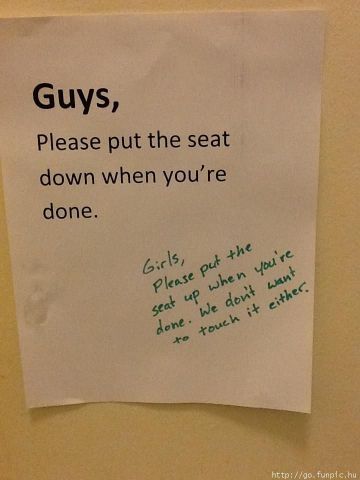 Guys,
Please put the seat
down when you're
done.
Girls,
Please put the
seat up when you're
done. We don't want
to touch it either.
http://go.funpic.hu